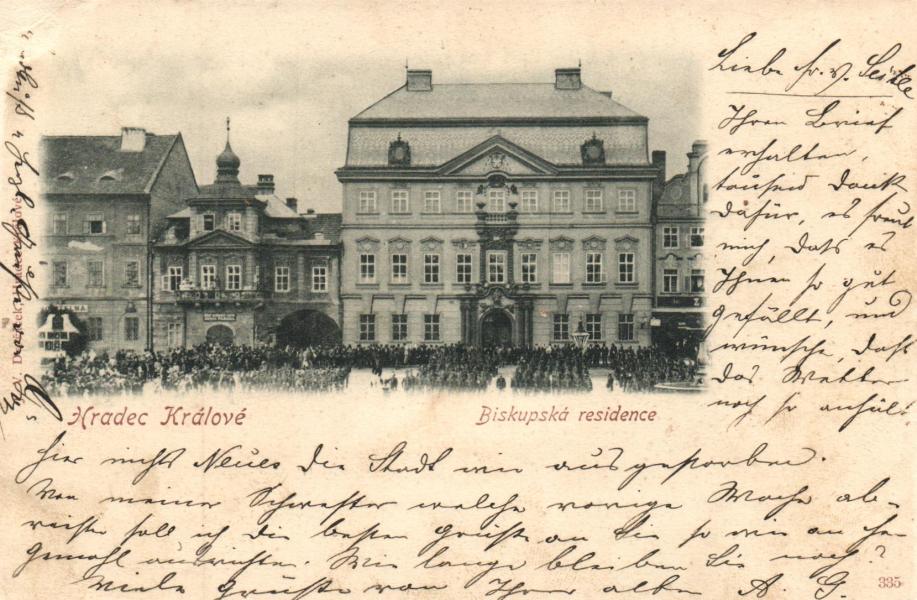 Liebe Fr. v.
Ihren Brief
erhalten,
tausend Dank
dafür, es freut
mich, daß es
Ihnen so gut
gefällt, und
wünsche, daß
das Wetter
noch so anhält
Hradec Králové
Biskupská residence
hier nichts Neues die Stadt wie ausgestorben.
Von meiner Schwester welche vorige Woche ab-
reiste soll ich die besten Grüße an Sie so wie an
Gemahl ausrichten. Wie lange bleiben Sie noch?
Viele Grüße von Ihrer alten A. G.
335